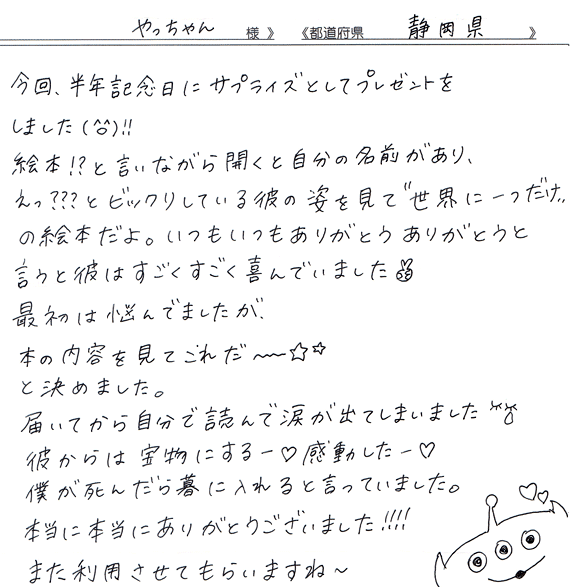 やっちゃん 様》 《都道府県 静岡県 》
今回、半年記念日にサプライズとしてプレゼントを
しました(^^)!!
絵本!?と言いながら開くと自分の名前があり、
えっ???とビックリしている彼の姿を見て"世界に一つだけ"
の絵本だよ。いつもいつもありがとうありがとうと
言うと彼はすごくすごく喜んでいました✌
最初は悩んでましたが、
本の内容を見てこれだ〜〜☆☆
と決めました。
届いてから自分で読んで涙が出てしまいました
彼からは宝物にするー♡感動したー♡
僕が死んだら墓に入れると言っていました。
本当に本当にありがとうございました!!!!
また利用させてもらいますね〜